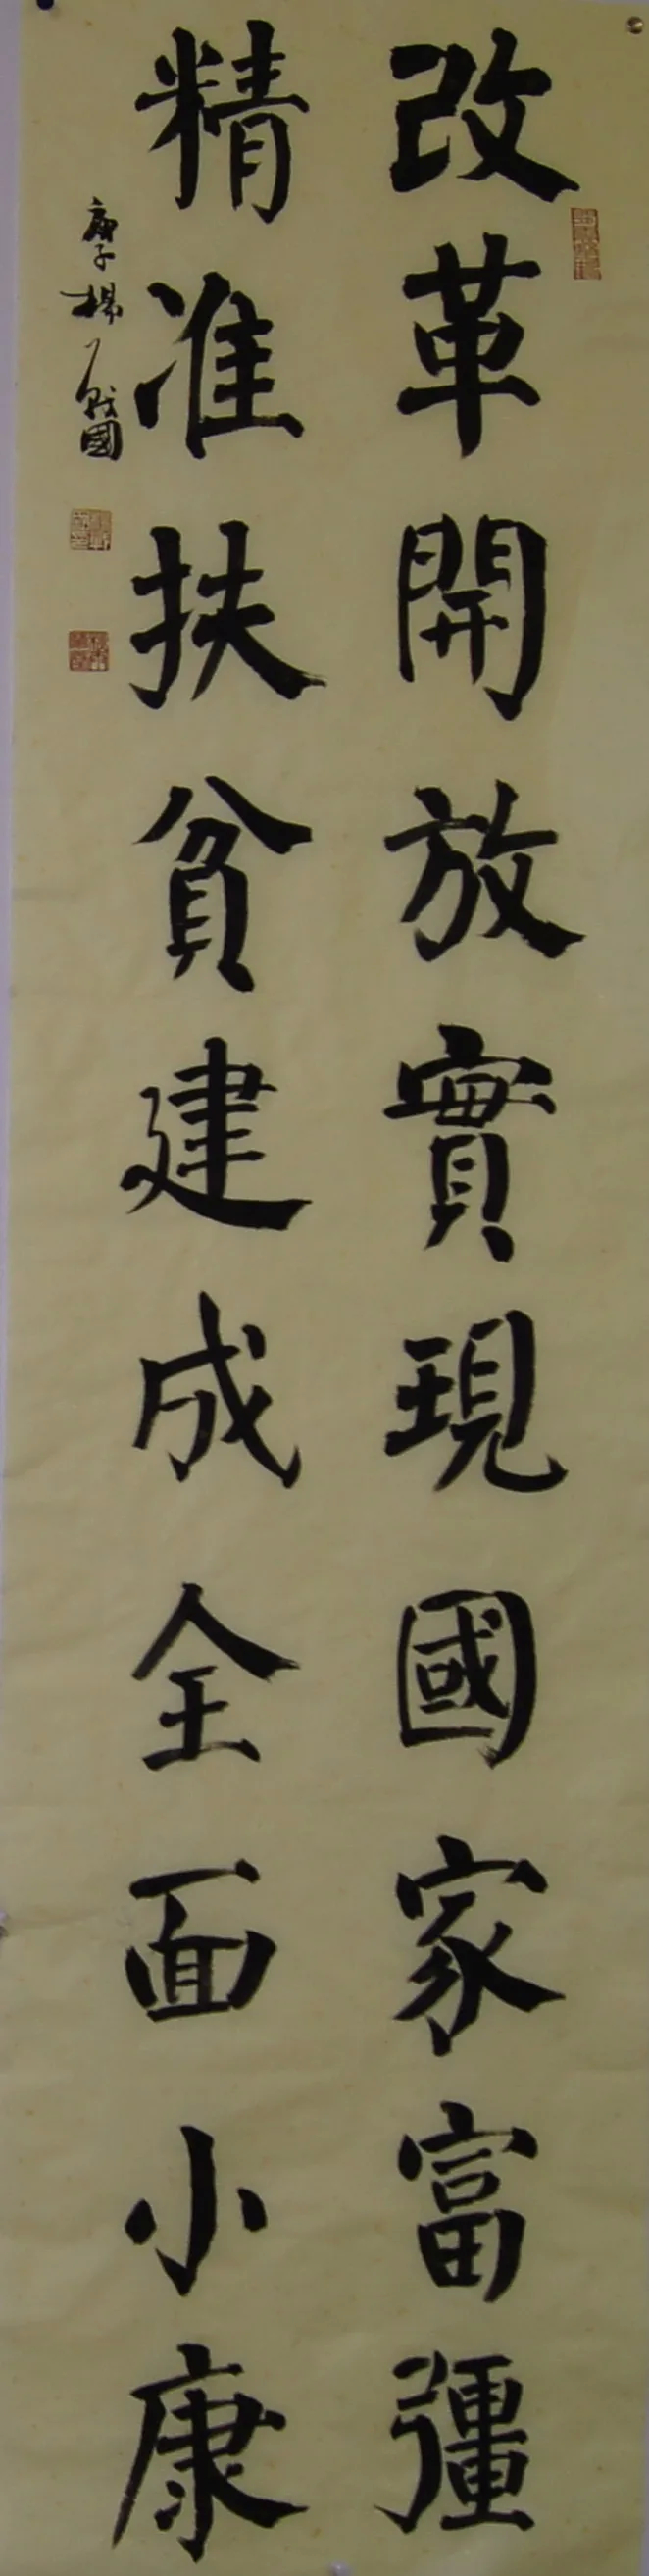 改革開放實現國家富彊
精准扶貧建成全面小康
庚子楊
國